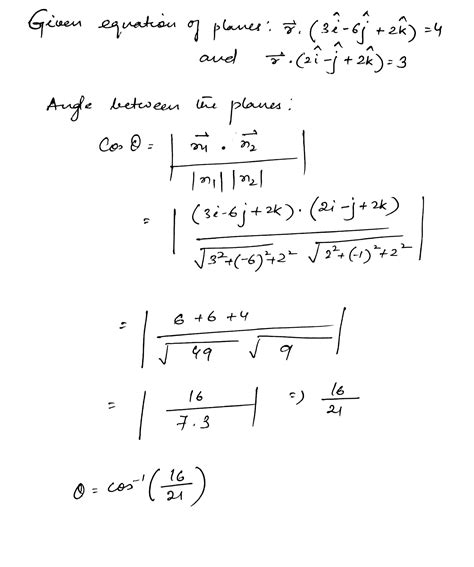 Given equation of planes: r⃗ . (3î - 6ĵ + 2k̂) = 4
and r⃗ . (2î - ĵ + 2k̂) = 3
Angle between the planes:
Cos θ = | n⃗1 . n⃗2 / |n1| |n2| |
= | (3i - 6j + 2k) . (2i - j + 2k) / √3²+(-6)²+2² √2²+(-1)²+2² |
= | 6 + 6 + 4 / √49 √9 |
= | 16 / 7.3 | => 16/21
θ = cos⁻¹ (16/21)